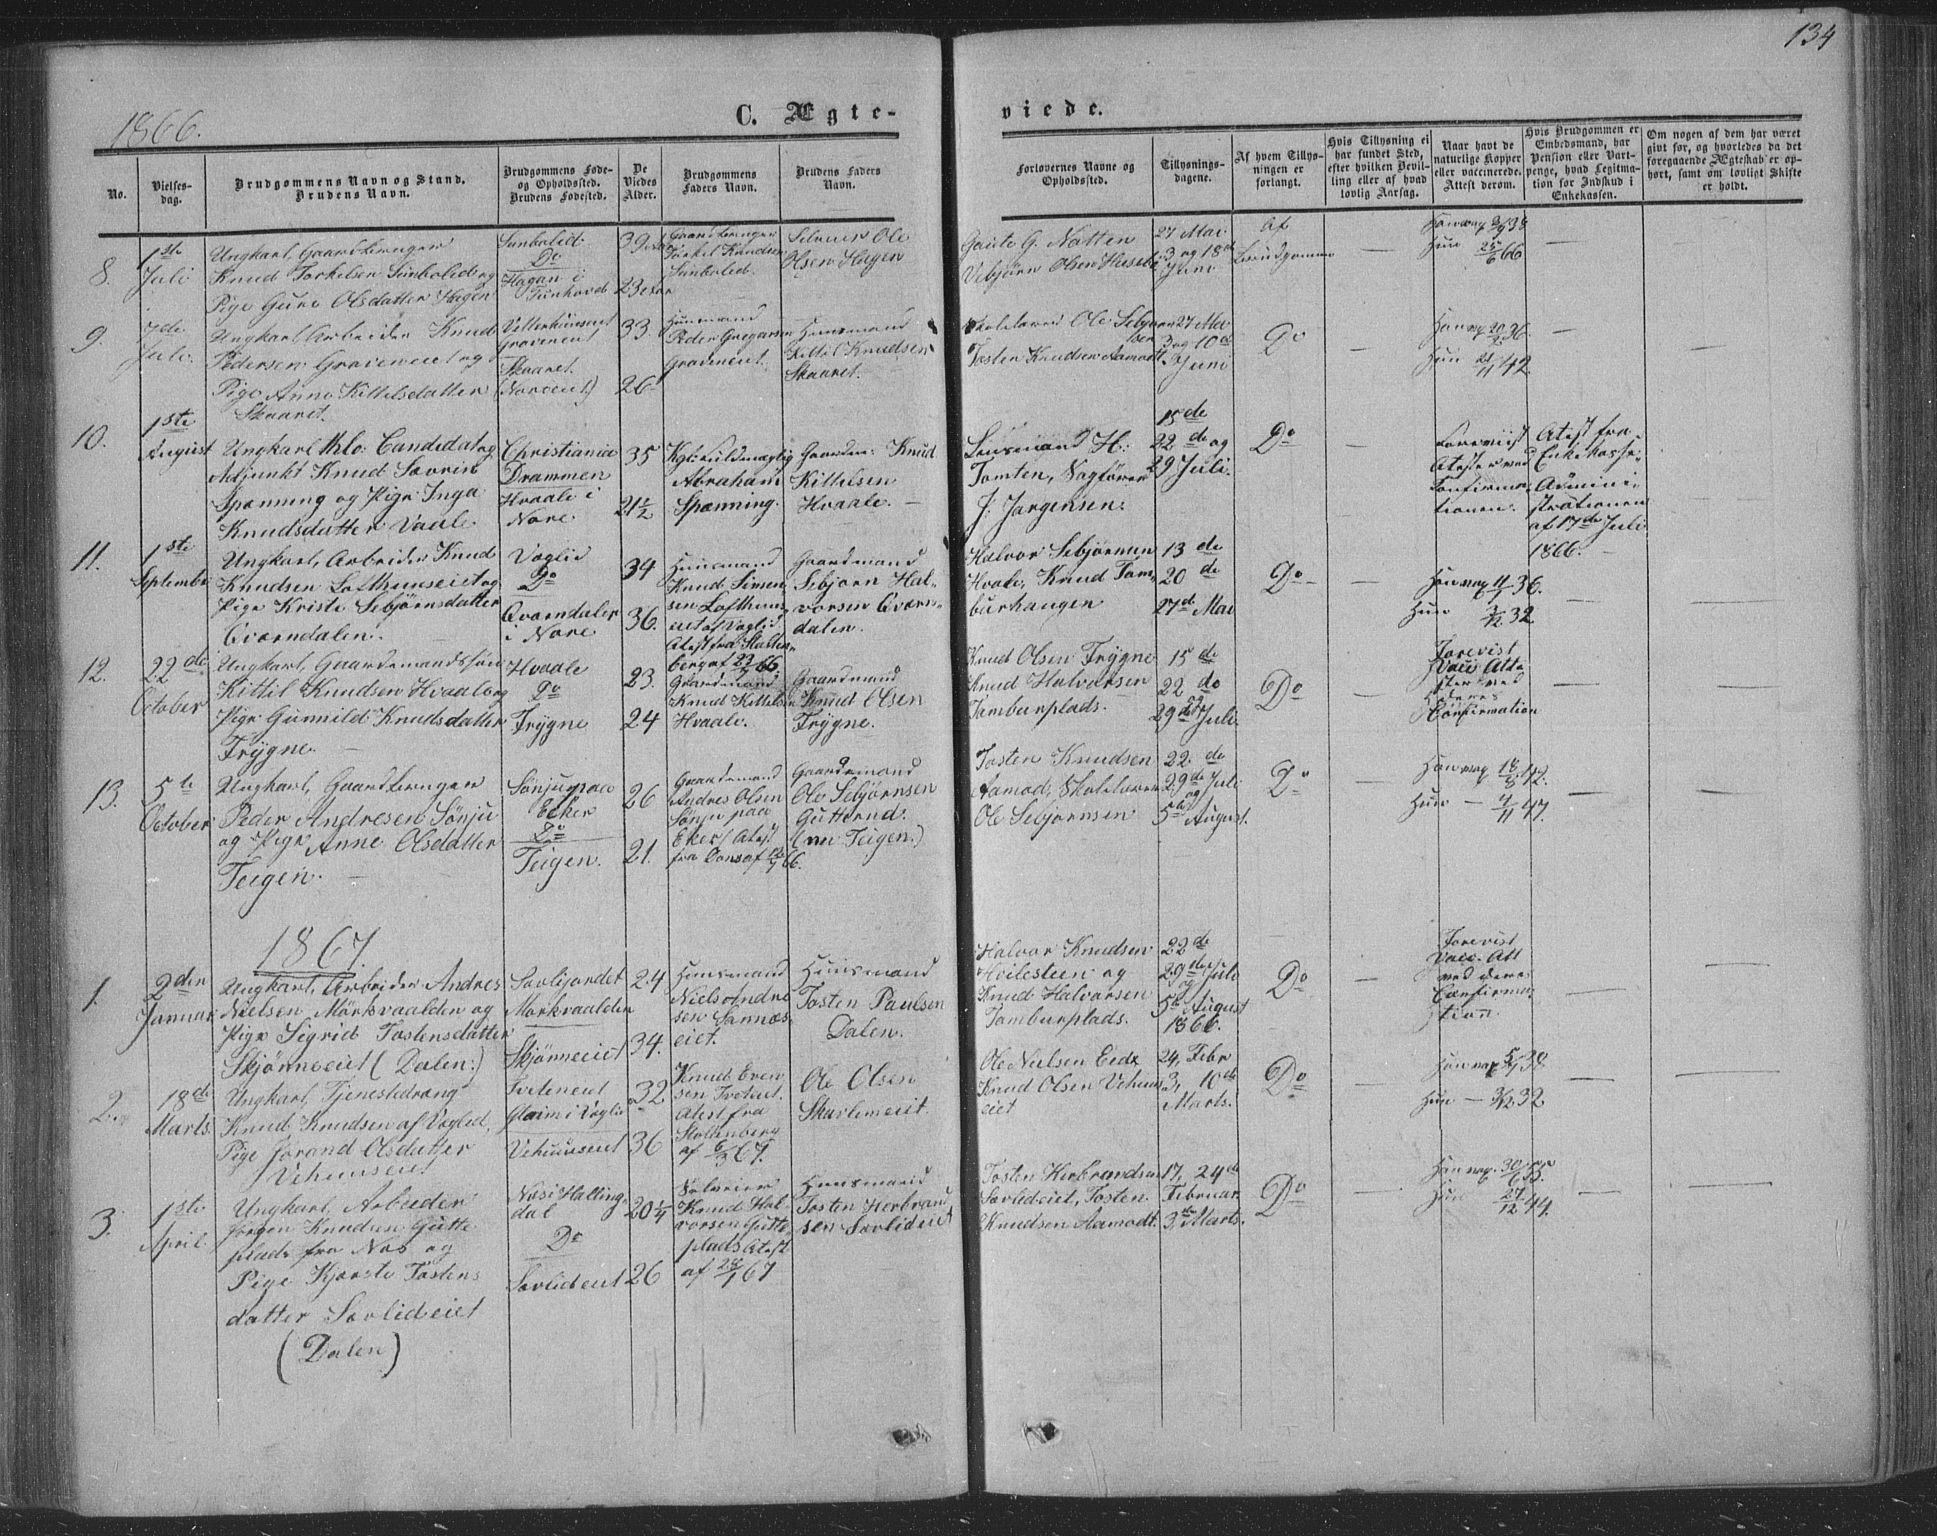 134
1866.
C. Ægte-
viede.
No.
Vielses-
dag.
Brudgommens Navn og Stand.
Brudens Navn.
Brudgommens Føde-
og Opholdssted.
Brudens Fødested.
De
Viedes
Alder.
Brudgommens
Faders Navn.
Brudens Faders
Navn.
Forlovernes Navne og
Opholdssted.
Tillysnings-
dagene.
Af hvem Tillys-
ningen er
forlangt.
Hvis Tillysning ei
har fundet Sted,
efter hvilken Bevil-
ling eller af hvad
lovlig Aarsag.
Naar havt de
naturlige Kopper
eller vaccinerede.
Attest derom.
Hvis Brudgommen er
Embedsmand, har
Pension eller Vart-
penge, hvad Legitima-
tion for Indskud i
Enkekassen.
Om nogen af dem har været
gift før, og hvorledes da det
foregaaende Ægteskab er op-
hørt, samt om lovligt Skifte
er holdt.
8.
1ste
Juli
Ungkarl, Gaardbruger
Knud Torkelsen Sunbolid og
Pige Guro Olsdatter Hagen
Sunbolid.
Do
Hagan i
Tunhovd
39 Aar
23 Aar
Gaardbruger
Torkel Knudsen
Sunbolid.
Selveier Ole
Olsen Hagen
Gaute G. Natten
Vebjørn Olsen
27 Mai
3 og 18de
Juni
Af
Brudgommen
Hun 25/6 66
9.
7de
Juli.
Ungkarl Arbeider Knud
Pedersen Graveneiet og
Pige Anne Kittelsdatter
Skaaret.
Graveneiet
Skaaret.
(Noreeiet)
33.
26
Huusmand
Peder Gregarsen
Graveneiet.
Huusmand
Kittil Knudsen
Skaaret.
Skolelærer Ole Sebjørn-
sen
Tosten Knudsen Aamodt.
27 Mai
3 og 10de
Juni
Do
Hun 21/11 42
10.
1ste
August
Ungkarl theo. Candidat og
Adjunkt Knud Sevrin
Spænning og Pige Inga
Knudsdatter Vaale.
Christiania
Drammen
Hvaale i
Nore.
35
21½
Abraham
Spænning.
Gaardm. Knud
Kittelsen
Hvaale.
Lensmand H:
Tomten, Vagtører
J. Jørgensen.
15de
22de og
29 Juli.
Do
Forevist
Atester ved
Confirma-
tionen.
Atest fra
Enkekasse-
Admini-
strationen
af 17de Juli
1866.
11.
1ste
September
Ungkarl, Arbeider Knud
Knudsen Lofthuuseiet og
Pige Kristi Sebjørnsdatter
Qværndalen.
Vaglid
Do
Qværndalen
i Nore
34
36.
Huusmand
Knud Simen-
sen Lofthuus-
eiet af Vaglid
Atest fra Stolten-
berg af 22/7 66
Gaardmand
Sebjørn Hal-
vorsen Qværn-
dalen.
Halvor Sebjørnsen
Hvale, Knud Tam-
burhaugen
13de
20de
27de Mai
Do
Hun 3/12 32
12.
22de
October
Ungkarl, Gaardmandssøn
Kittil Knudsen Hvaal og
Pige Gunnild Knudsdatter
Frygne.
Hvaale
Do
Frygne
23.
24
Gaardmand
Knud Kittelsen
Hvaale.
Gaardmand
Knud Olsen
Frygne.
Knud Olsen Frygne
Knud Halvorsen
Tamburplads.
15de
22de
og
29de Juli
Do
Forevist
Vacc. Atte-
ster ved
Confirmation
13.
5te
October
Ungkarl, Gaardbruger
Peder Andresen Sønju
og Pige Anne Olsdatter
Teigen.
Sønju paa
Eker
Do
Teigen.
26
21.
Gaardmand
Andres Olsen
Sønju paa
Eker, Atest
Gaardmand
Ole Sebjørnsen
Guttorud.
(nu Teigen.)
Tosten Knudsen
Aamod, Skolelærer
Ole Sebjørnsen
22de
29de Juli
og
5te August.
Do
Han vac 18/8 42.
Hun — 4/11 47.
1867.
1.
2den
Januar
Ungkarl, Arbeider Andres
Nielsen Mørkvaalden og
Pige Sigrid Tostensdatter
Skjønneeiet (Dalen.)
Mørkvaalden
Skjønneeiet
24
34.
Huusmand
Niels Andre-
sen Sannæs-
eiet.
Huusmand
Tosten Paulsen
Dalen.
Halvor Knudsen
Hvilesteen og
Knud Halvorsen
Tamburplads.
22de
29de Juli
og
5te August
1866.
Do
Forevist
Vacc. Att
ved deres
Confirma-
tion.
2.
18de
Marts.
Ungkarl, Tjenestedreng
Knud Knudsen af Vaglid,
Pige Jorand Olsdatter
Vehuuseiet
Tveteneiet
Vehuuseiet
32
36
Knud Even-
sen Tveteiet.
Atest fra
Stoltenberg
af 6/3 67.
Ole Olsen
Ole Nielsen Eide
Knud Olsen Vehuus-
eiet
24, Febr
3, 10de
Marts.
Do
Hun — 3/12 32
3.
1ste
April.
Ungkarl, Arbeider
Jørgen Knudsen Gutte-
plads fra Næs og
Pige Kjersti Tostens
datter Sævlideiet
(Dalen)
Næs i Halling-
dal
Do
Sævlideiet
20¼
26
Selveier
Knud Hal-
vorsen Gutte-
plads Atest
af 28/1 67
Huusmand
Tosten Herbrand-
sen Sævlideiet
Tosten Herbrandsen
Sævlideiet, Tosten
Knudsen Aamodt.
17, 24de
Februar
3de Marts.
Do
Hun 27/12 44.